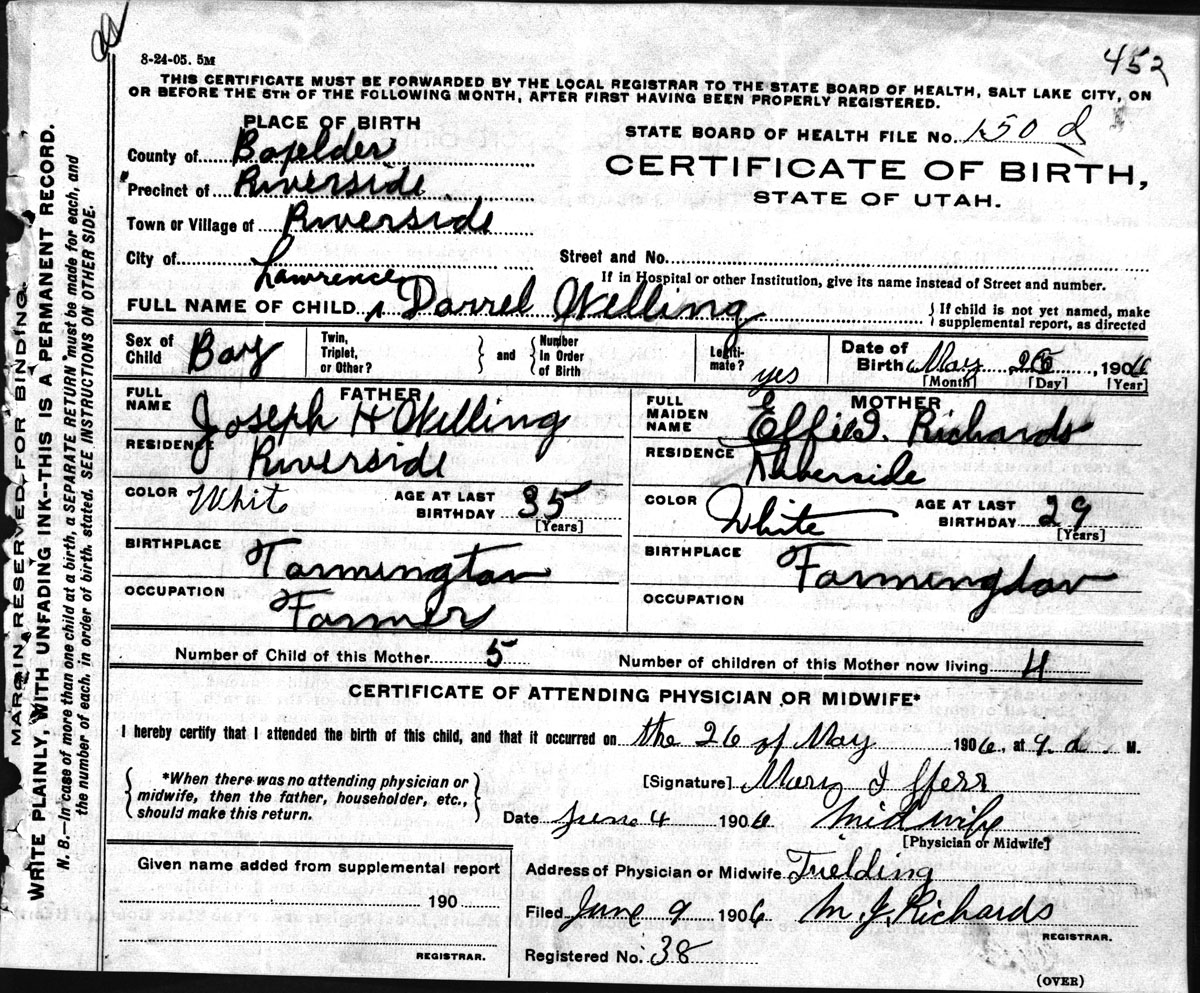 452
8-24-05. 5M
THIS CERTIFICATE MUST BE FORWARDED BY THE LOCAL REGISTRAR TO THE STATE BOARD OF HEALTH, SALT LAKE CITY, ON
OR BEFORE THE 5TH OF THE FOLLOWING MONTH, AFTER FIRST HAVING BEEN PROPERLY REGISTERED.
PLACE OF BIRTH
STATE BOARD OF HEALTH FILE No. 150 d
County of Boxelder
CERTIFICATE OF BIRTH,
Precinct of Riverside
STATE OF UTAH.
Town or Village of Riverside
City of
Street and No.
If in Hospital or other Institution, give its name instead of Street and number.
Lawrence
FULL NAME OF CHILD Darrel Welling
{ If child is not yet named, make
supplemental report, as directed
Sex of Child Boy
Twin, Triplet, or Other? } and { Number In Order of Birth
Legiti-mate? yes
Date of Birth May 26 1906
[Month] [Day] [Year]
FATHER
FULL NAME Joseph H Welling
MOTHER
FULL MAIDEN NAME Effie I. Richards
RESIDENCE Riverside
RESIDENCE Riverside
COLOR Whit AGE AT LAST BIRTHDAY 35 [Years]
COLOR White AGE AT LAST BIRTHDAY 29 [Years]
BIRTHPLACE Farmington
BIRTHPLACE Farmington
OCCUPATION Farmer
OCCUPATION
Number of Child of this Mother 5
Number of children of this Mother now living 4
CERTIFICATE OF ATTENDING PHYSICIAN OR MIDWIFE*
I hereby certify that I attended the birth of this child, and that it occurred on the 26 of May 1906, at 9 a. M.
{ *When there was no attending physician or
midwife, then the father, householder, etc.,
should make this return. }
[Signature] Mary I
Date June 4 1906 Midwife
[Physician or Midwife]
Given name added from supplemental report
190
REGISTRAR.
Address of Physician or Midwife. Fielding
Filed June 9 1906 M. J. Richards
REGISTRAR.
Registered No. 38
(OVER)
MARGIN RESERVED FOR BINDING.
WRITE PLAINLY, WITH UNFADING INK--THIS IS A PERMANENT RECORD.
N. B.—In case of more than one child at a birth, a SEPARATE RETURN must be made for each, and
the number of each, in order of birth, stated. SEE INSTRUCTIONS ON OTHER SIDE.